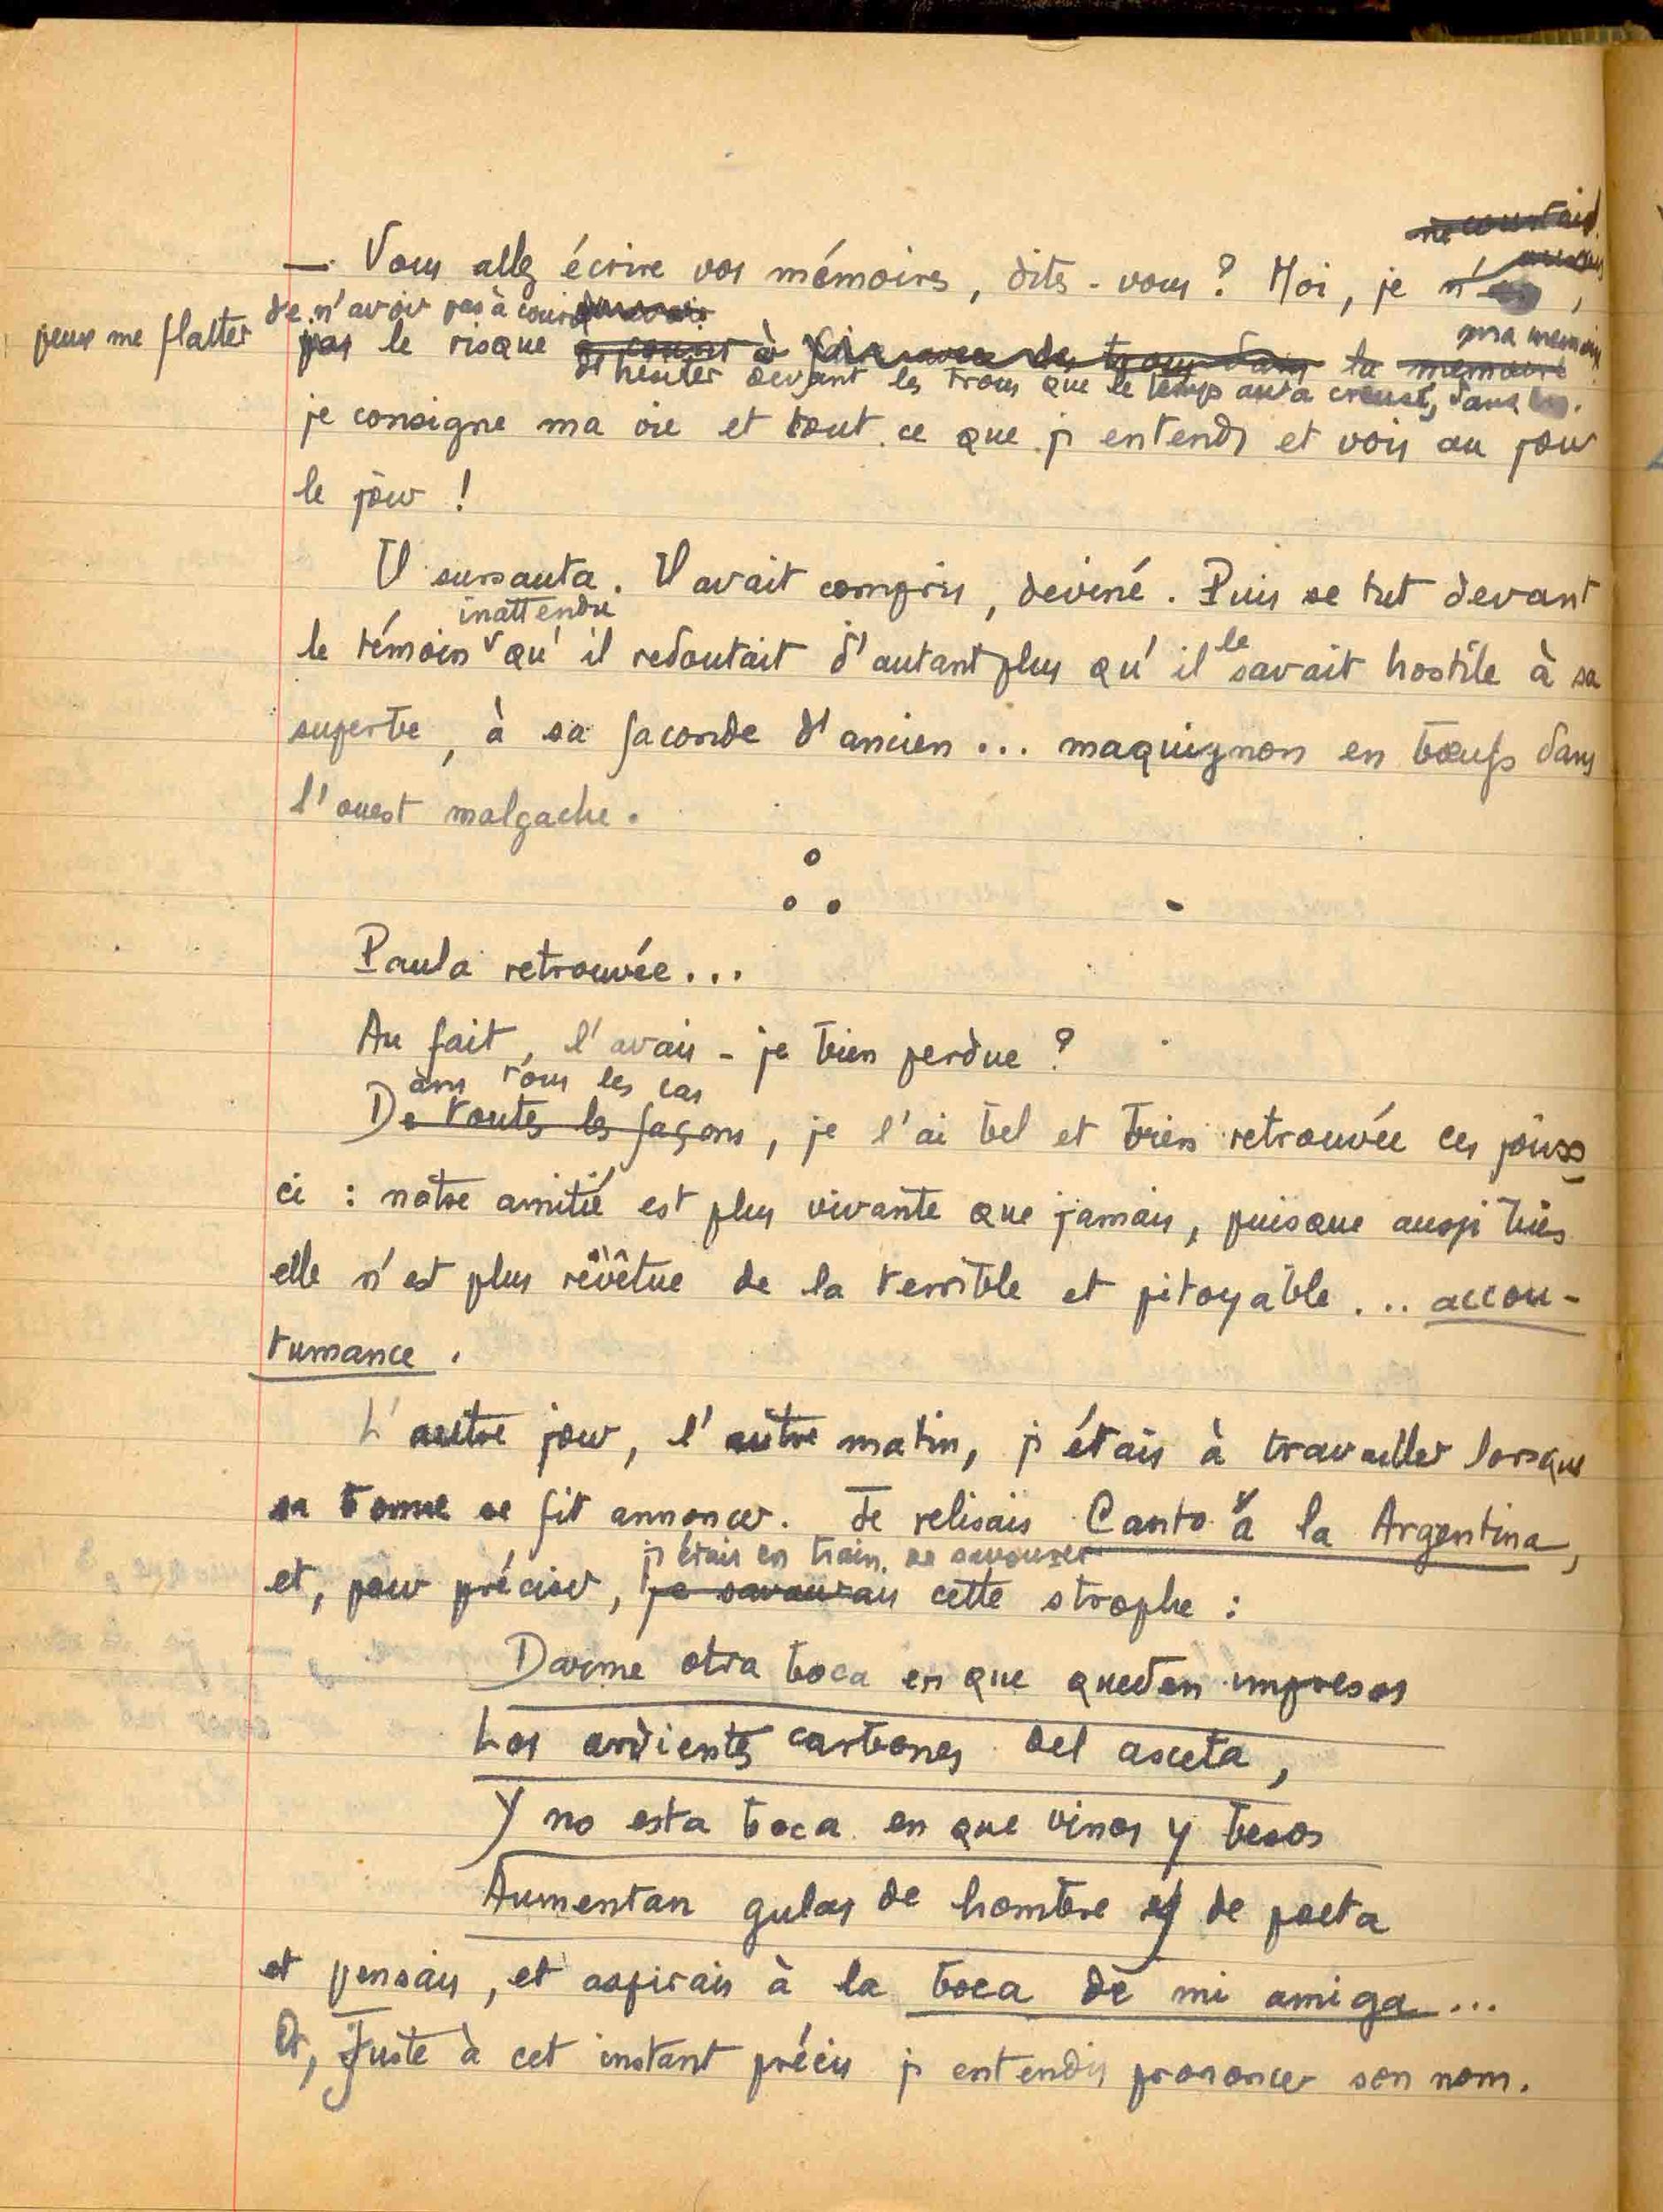 — Vous allez écrire vos mémoires, dites-vous ? Moi, je n'
peux me flatter de n'avoir pas à courir
pas le risque
d'hésiter devant les trous que le temps aura creusés dans ma mémoire
je consigne ma vie et tout ce que j'entends et vois au jour
le jour !
Il sursauta. Il avait compris, deviné. Puis se tut devant
le témoin inattendu qu'il redoutait d'autant plus qu'il le savait hostile à sa
superbe, à sa faconde d'ancien... maquignon en bœufs dans
l'ouest malgache.
Paula retrouvée...
Au fait, l'avais-je bien perdue ?
Dans tous les cas
De toutes les façons, je l'ai bel et bien retrouvée ces jours-
ci : notre amitié est plus vivante que jamais, puisque aussi bien
elle n'est plus revêtue de la terrible et pitoyable... accou-
tumance.
L'autre jour, l'autre matin, j'étais à travailler lorsque
sa bonne se fit annoncer. Je relisais Canto a la Argentina,
j'étais en train de savourer
et, pour préciser, je savourais cette strophe :
Darme otra boca en que queden impresos
Los ardientes carbones del asceta,
Y no esta boca en que vinos y besos
Aumentan gulas de hombre y de poeta
et pensais, et aspirais à la boca de mi amiga...
Or, Juste à cet instant précis j'entendis prononcer son nom.